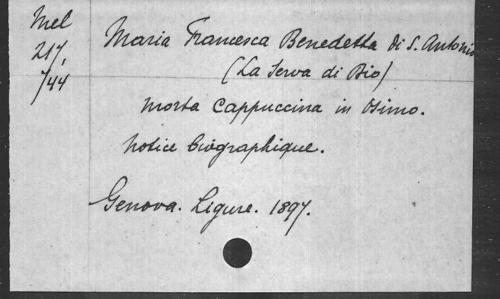 Mel
217,
/44
Maria Francesca Benedetta di S. Antonio
(La Serva di Dio)
morta Cappuccina in Osimo.
Notice biographique.
Genova. Ligure. 1897.